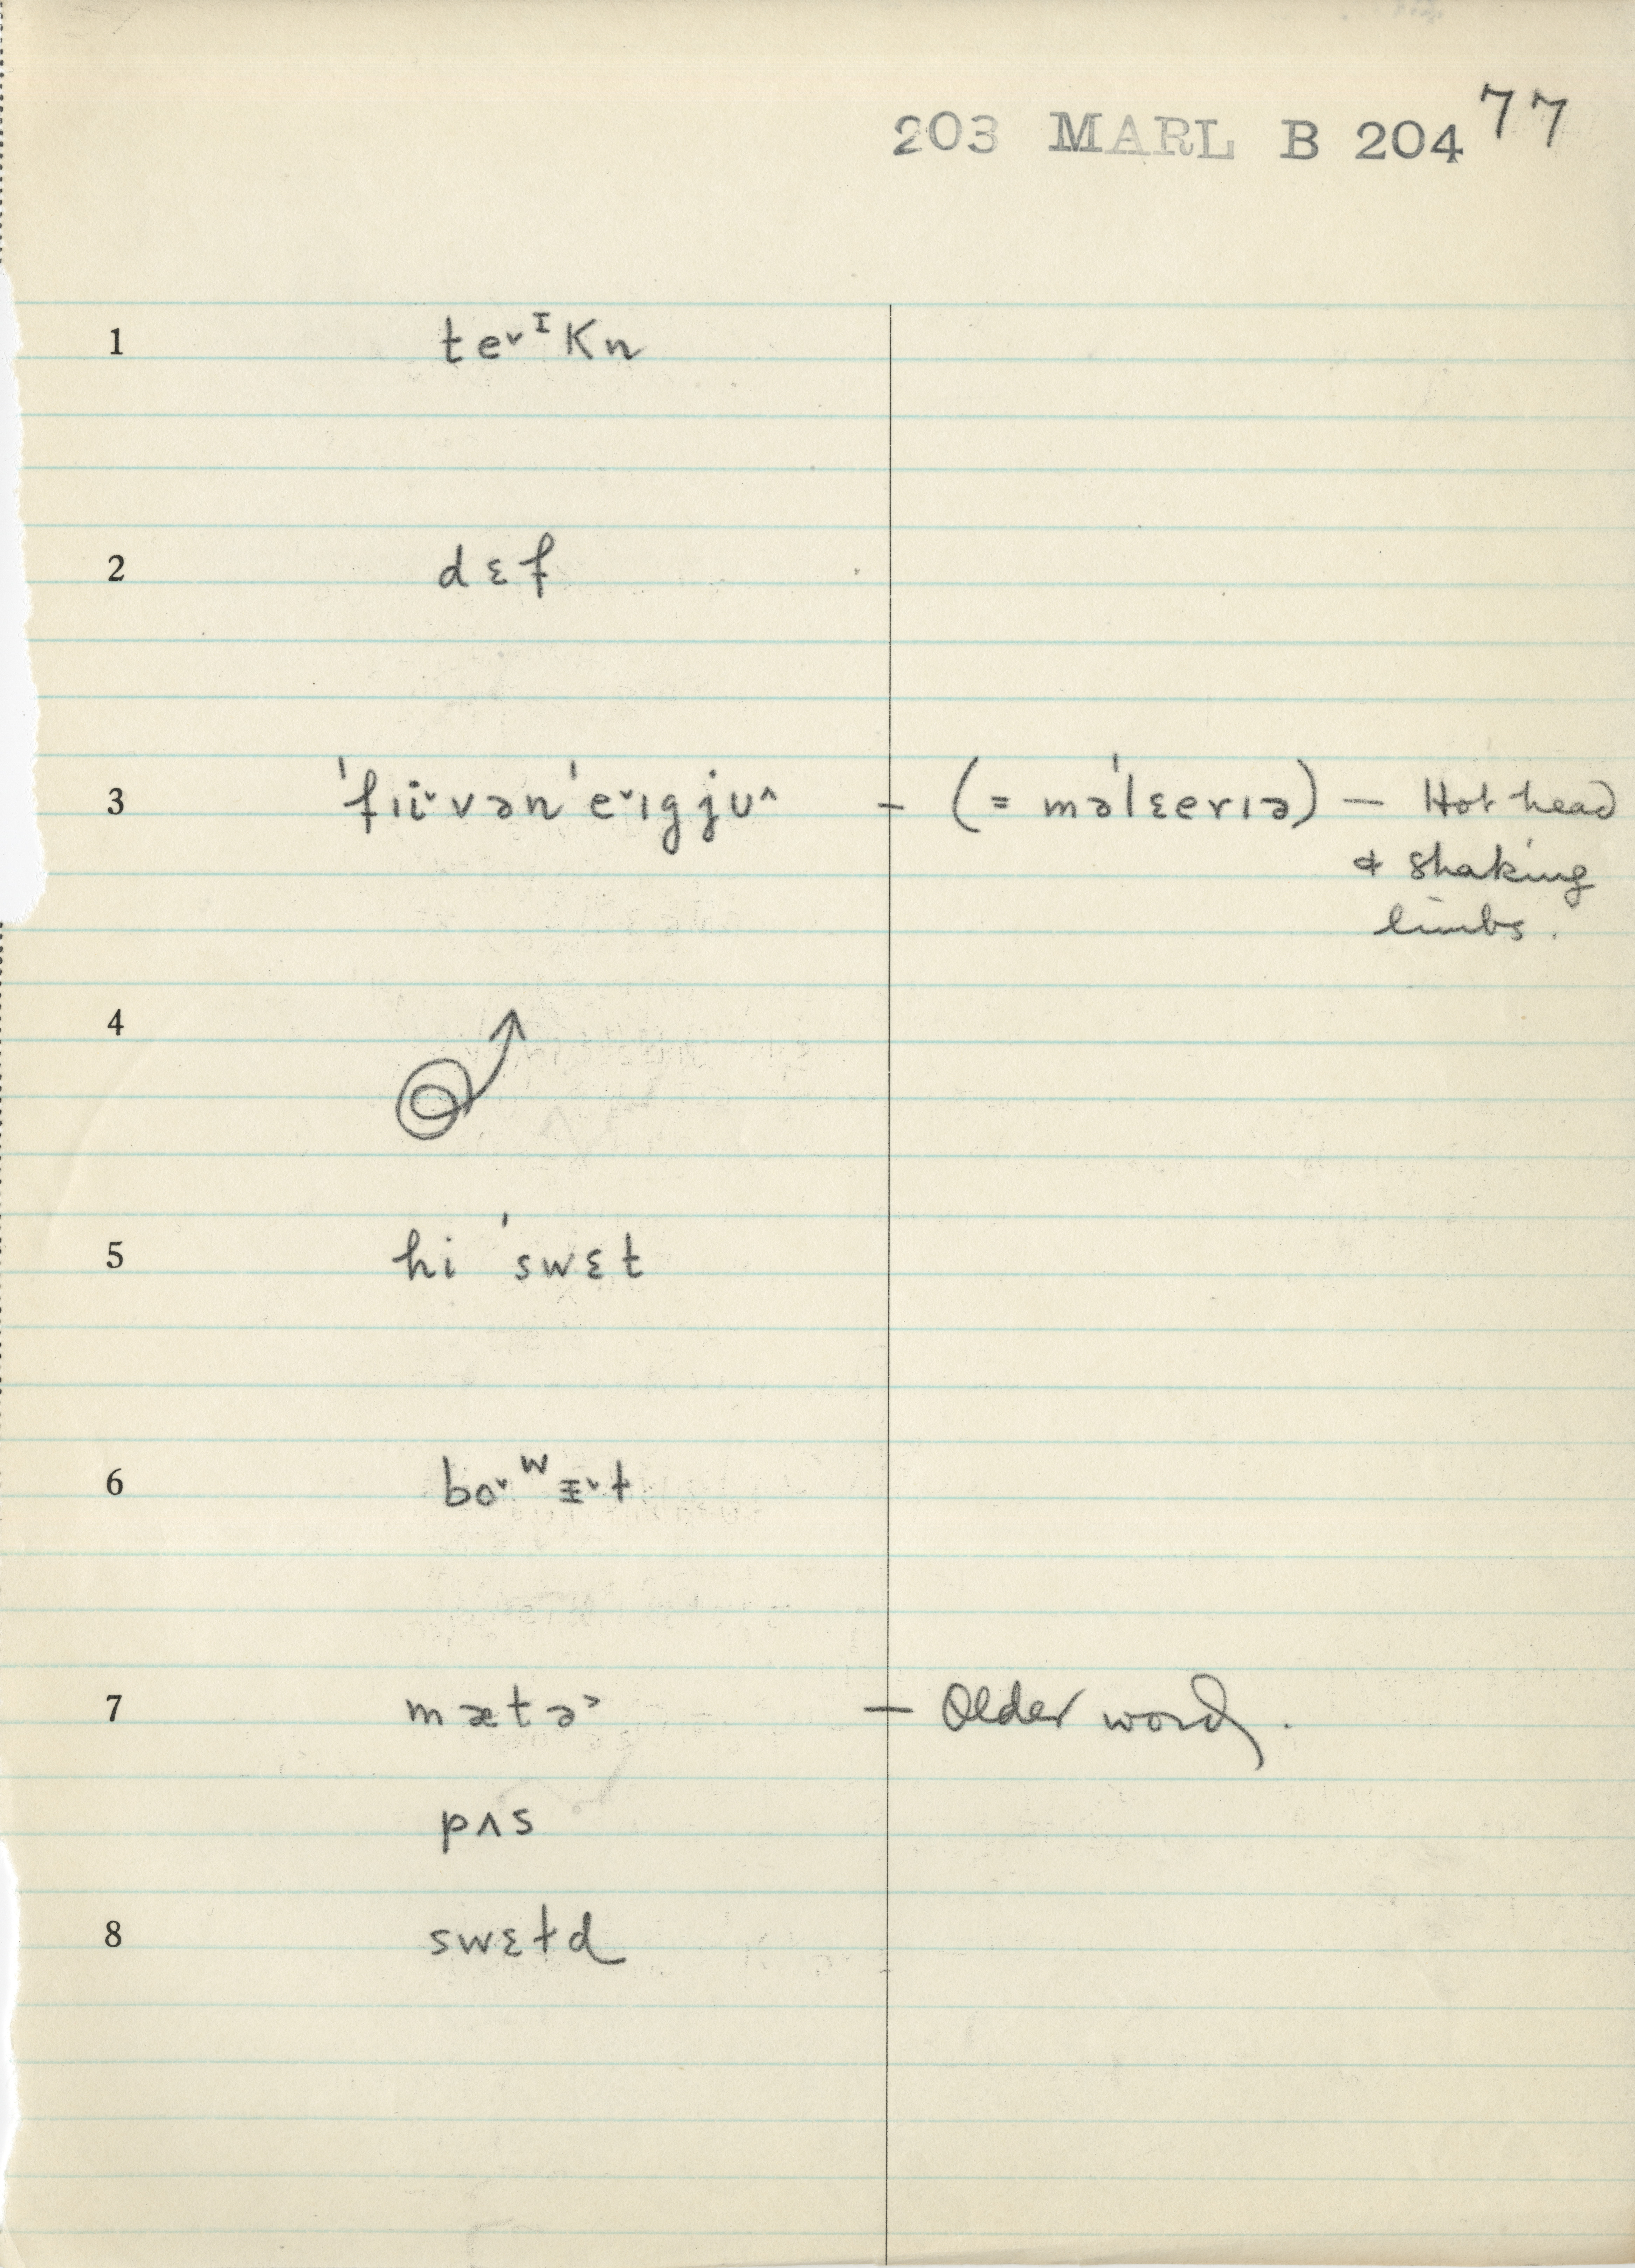 203 MARL B 204 77
1 te˅ᴵKn
2 dɛf
3 ˈfıi˅vənˈe˅ıgjʋ˄ – (= məˈlɛerıə) – Hot head
& shaking
limbs.
4
5 hi ˈswɛt
6 bo˅ʷᵻ˅t
7 mætə˃ – Older word.
pʌs
8 swɛtd